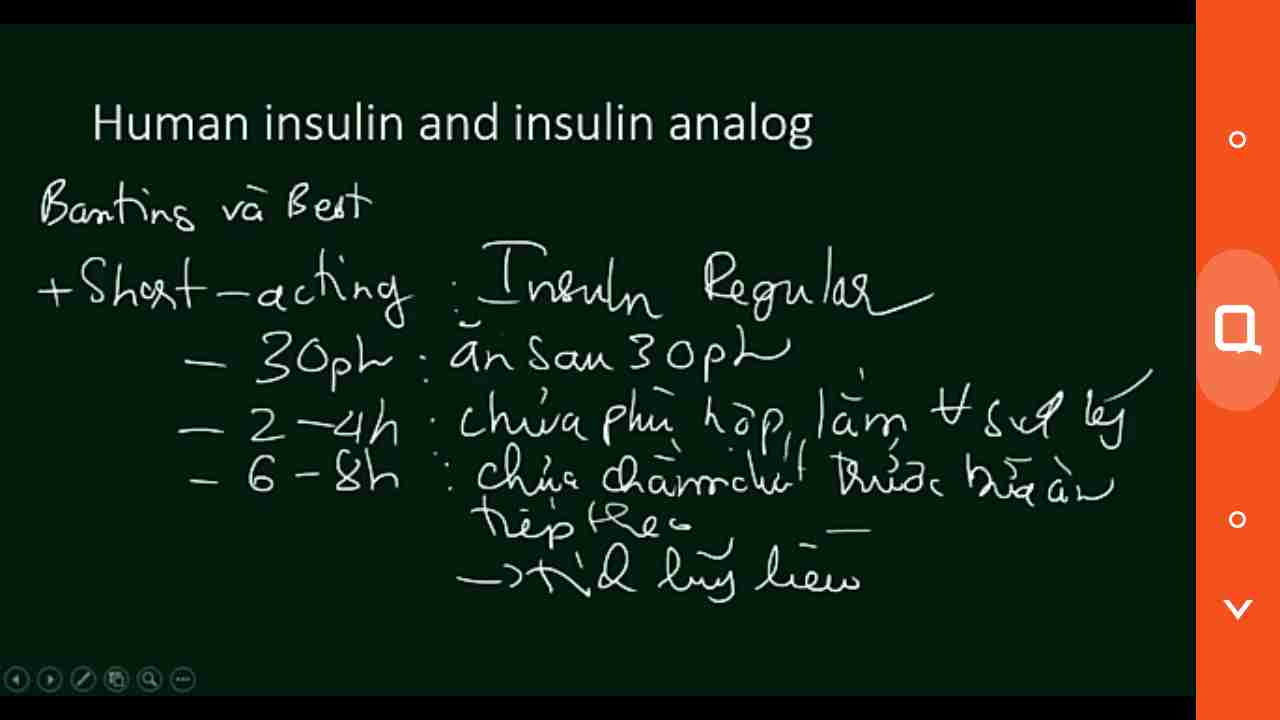 Human insulin and insulin analog
Banting và Best
+ Short-acting : Insuln Regular
- 30ph : ăn sau 30ph
- 2-4h : chưa phù hợp, làm ∀ lý
- 6-8h : chưa chấm dứt trước bữa ăn
tiếp theo
→ lũy liều